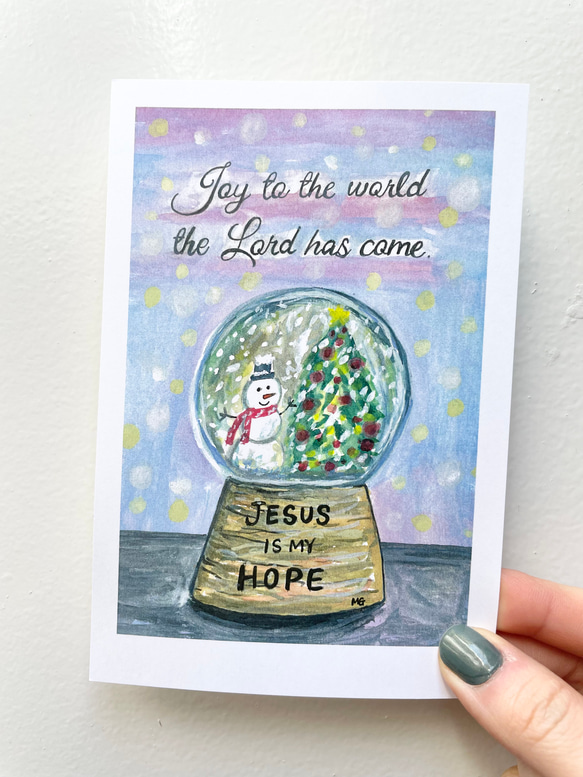 Joy to the world
the Lord has come.
JESUS
IS MY
HOPE
MG